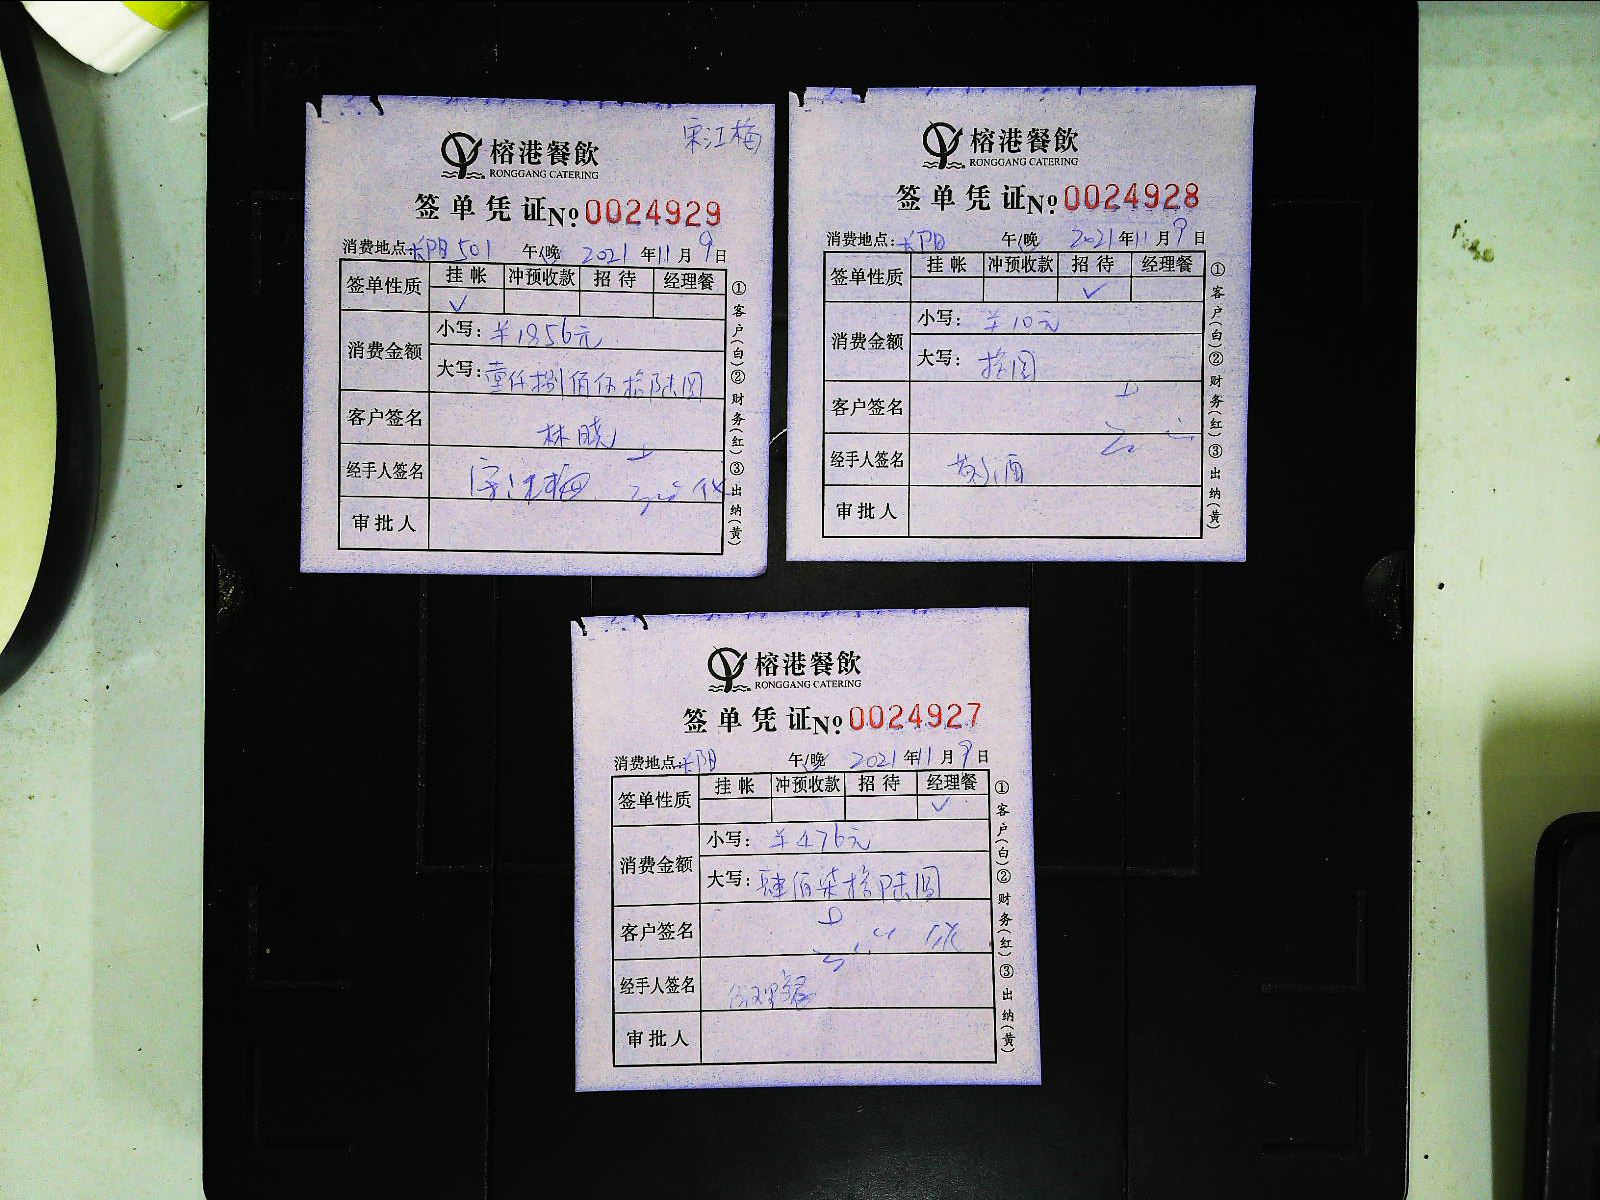 宋江梅
榕港餐飲
RONGGANG CATERING
签单凭证No.0024929
消费地点:长阳501 午/晚 2021年11月9日
签单性质 挂帐 冲预收款 招待 经理餐
✓
消费金额 小写:¥1856元
大写:壹仟捌佰伍拾陆圆
客户签名 林晓
经手人签名 宋江梅
审批人
①客户(白)②财务(红)③出纳(黄)
榕港餐飲
RONGGANG CATERING
签单凭证No.0024928
消费地点:长阳 午/晚 2021年11月9日
签单性质 挂帐 冲预收款 招待 经理餐
✓
消费金额 小写: ¥10元
大写: 拾圆
客户签名
经手人签名 敬酒
审批人
①客户(白)②财务(红)③出纳(黄)
榕港餐飲
RONGGANG CATERING
签单凭证No.0024927
消费地点:长阳 午/晚 2021年11月9日
签单性质 挂帐 冲预收款 招待 经理餐
✓
消费金额 小写: ¥476元
大写:肆佰柒拾陆圆
客户签名
经手人签名 经理餐
审批人
①客户(白)②财务(红)③出纳(黄)